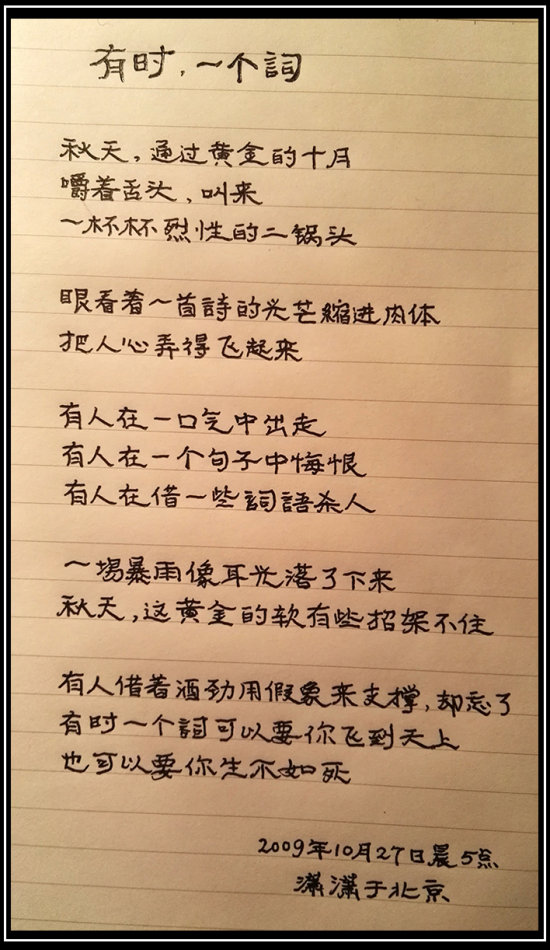 有时，一个詞
秋天，通过黄金的十月
嚼着舌头，叫来
一杯杯烈性的二锅头
眼看着一首詩的光芒縮进肉体
把人心弄得飞起来
有人在一口气中出走
有人在一个句子中悔恨
有人在借一些詞語杀人
一場暴雨像耳光落了下来
秋天，这黄金的软有些招架不住
有人借着酒劲用假象来支撑，却忘了
有时一个詞可以要你飞到天上
也可以要你生不如死
2009年10月27日晨5点
潇潇于北京